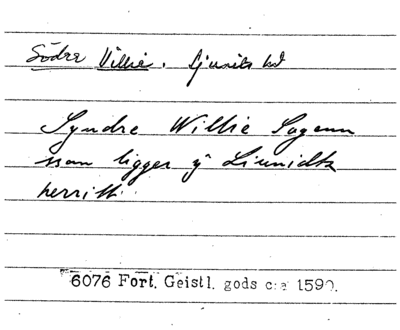 Södre Villie. Ljunits hd
Syndre Willie Sogenn
ssom ligger y Liunidtz
herritt
6076 Fort. Geistl. gods c:a 1590.